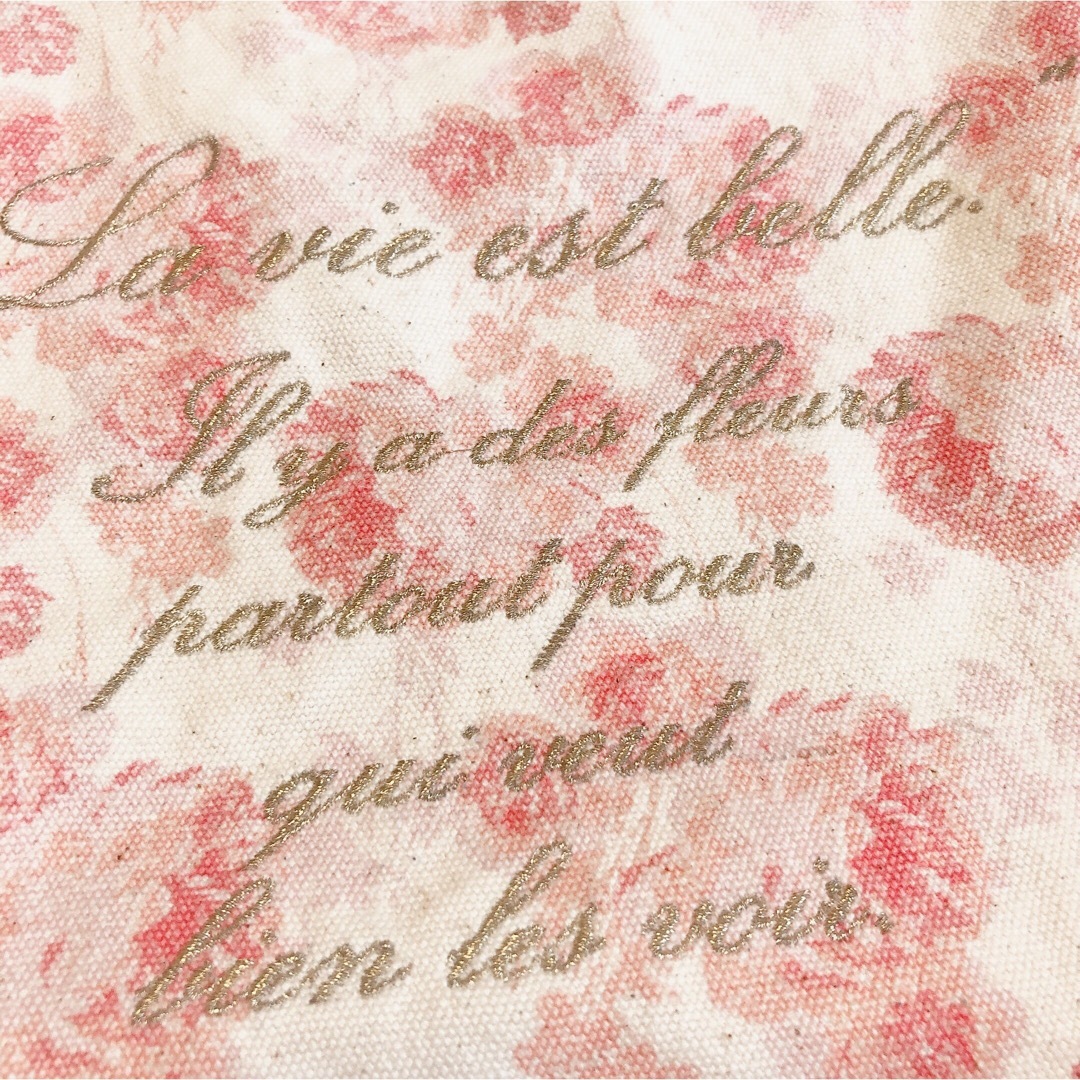 La vie est belle."
Il y a des fleurs
partout pour
qui veut
bien les voir.